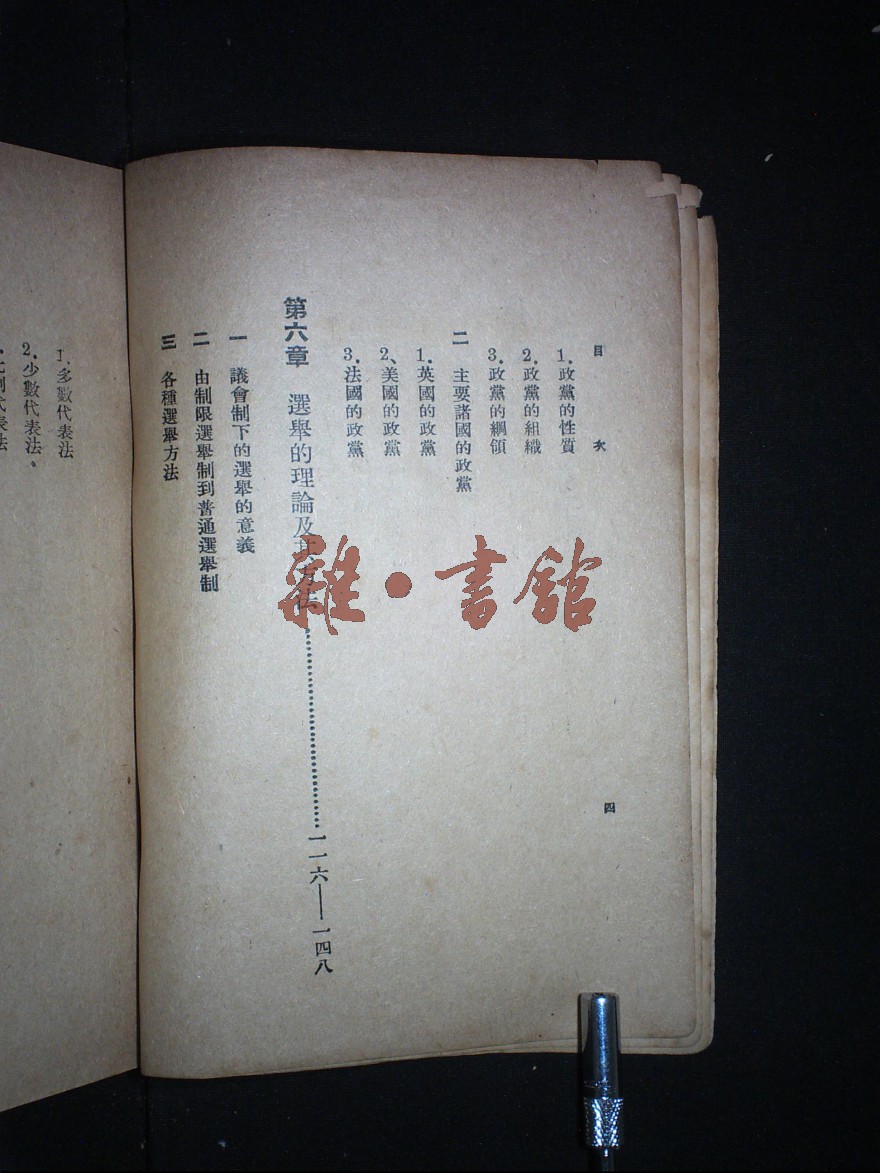 目次
四
1.政黨的性質
2.政黨的組織
3.政黨的綱領
二 主要諸國的政黨
1.英國的政黨
2、美國的政黨
3.法國的政黨
第六章 選舉的理論及其方法……一一六——一四八
一 議會制下的選舉的意義
二 由制限選舉制到普通選舉制
三 各種選舉方法
1.多數代表法
2.少數代表法。
雜·書館